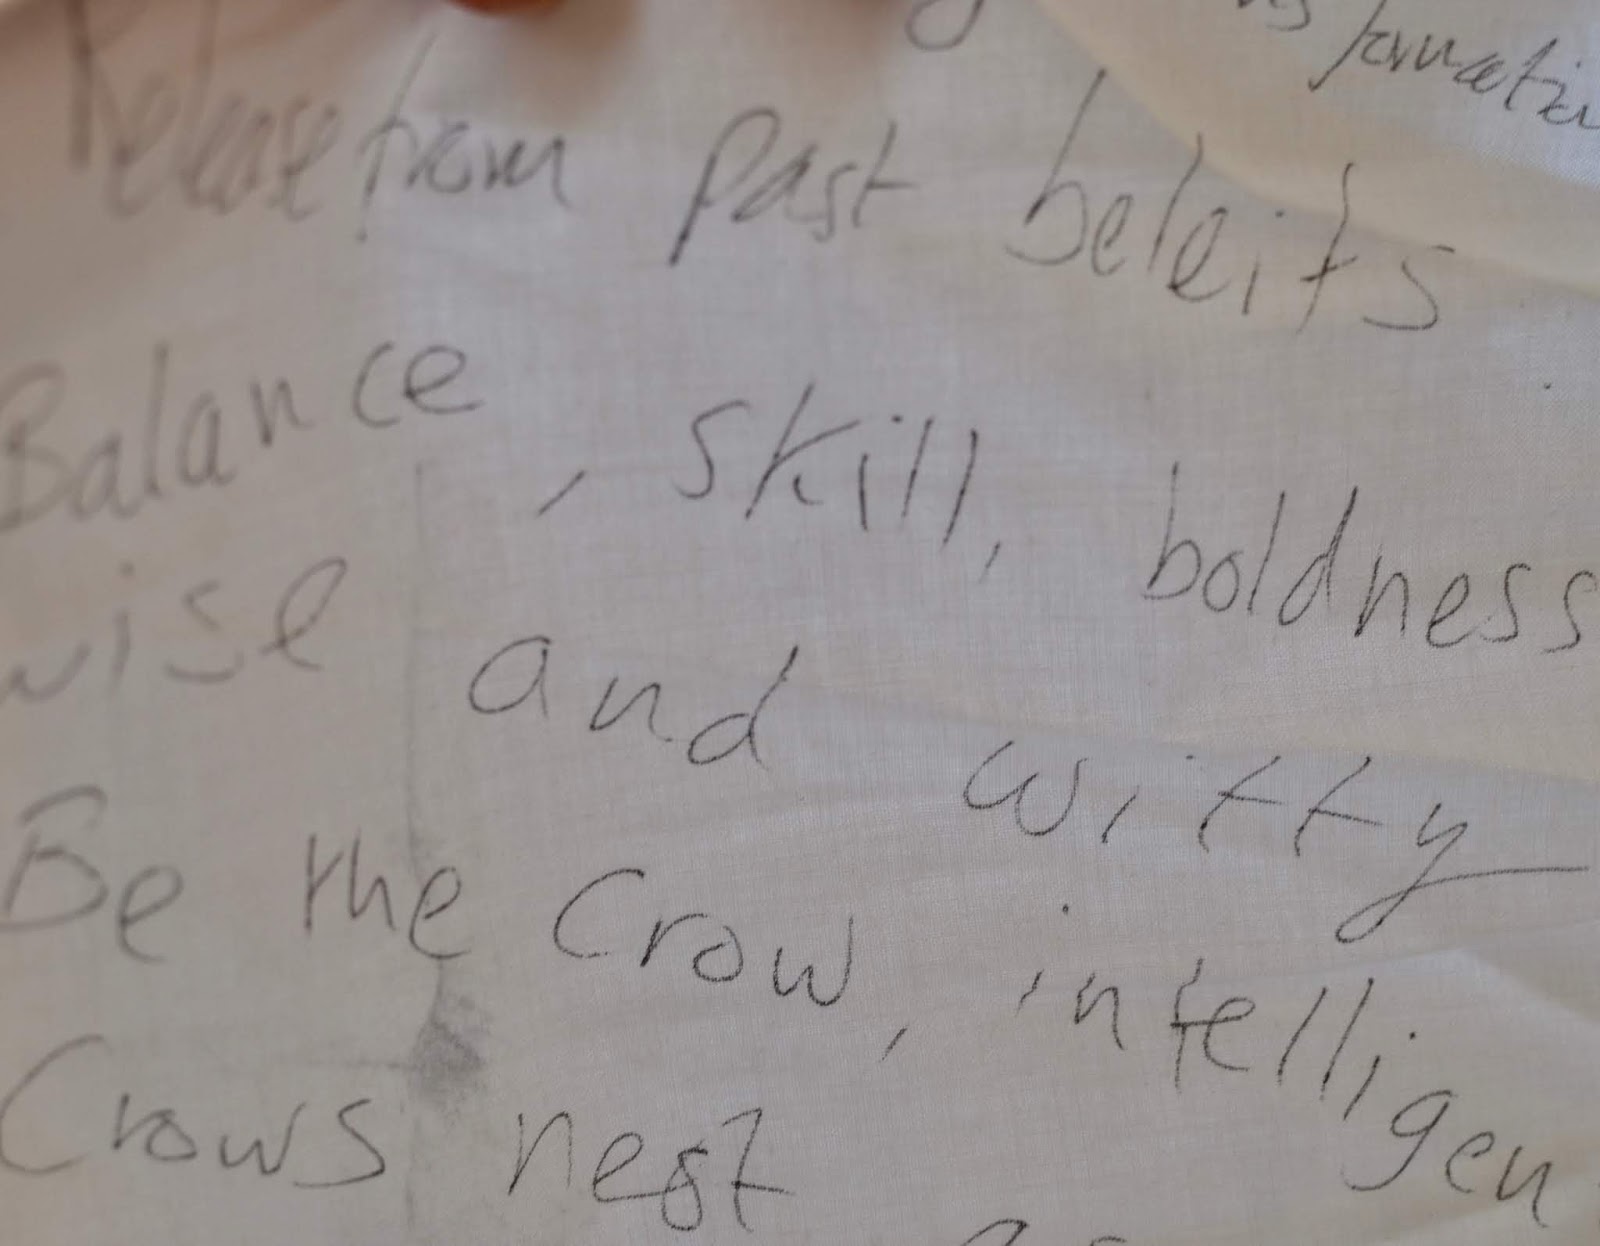 Release from past beleifs
Balance, skill, boldness
wise and witty
Be the Crow, intelligen
Crows nest